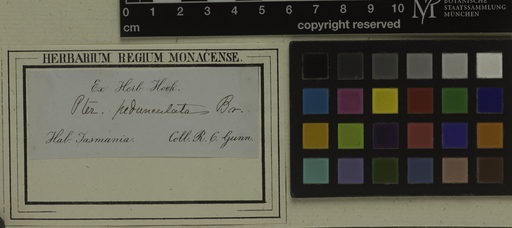 0 1 2 3 4 5 6 7 8 9 10
cm copyright reserved
BOTANISCHE
STAATSSAMMLUNG
MÜNCHEN
HERBARIUM REGIUM MONACENSE.
Ex Herb. Hook.
Pter. pedunculata Br.
Hab. Tasmania. Coll. R. C. Gunn.